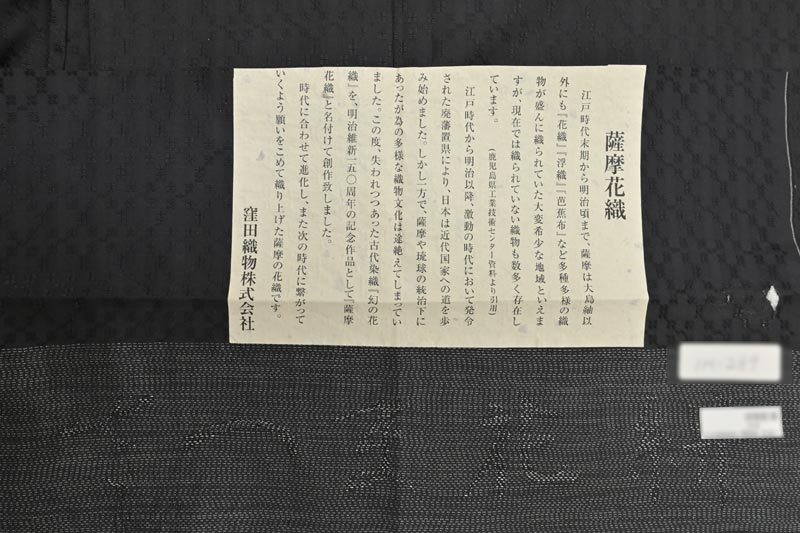 薩摩花織
江戸時代末期から明治頃まで、薩摩は大島紬以
外にも『花織』『浮織』『芭蕉布』など多種多様の織
物が盛んに織られていた大変希少な地域といえま
すが、現在では織られていない織物も数多く存在し
ています。（鹿児島県工業技術センター資料より引用）
江戸時代から明治以降、激動の時代において発令
された廃藩置県により、日本は近代国家への道を歩
み始めました。しかし一方で、薩摩や琉球の統治下に
あったが為の多様な織物文化は途絶えてしまってい
ました。この度、失われつつあった古代染織『幻の花
織』を、明治維新一五〇周年の記念作品として『薩摩
花織』と名付けて創作致しました。
時代に合わせて進化し、また次の時代に繋がって
いくよう願いをこめて織り上げた薩摩の花織です。
窪田織物株式会社